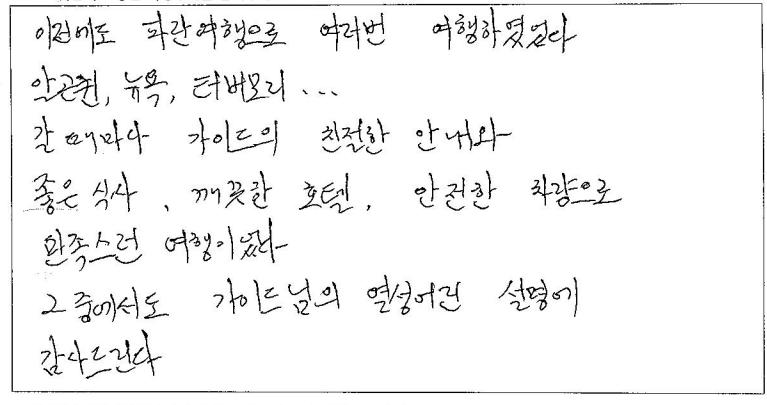 이전에도 파란여행으로 여러번 여행하였었다
알곤퀸, 뉴욕, 터버모리 ...
갈 때마다 가이드의 친절한 안내와
좋은 식사, 깨끗한 호텔, 안전한 차량으로
만족스런 여행이었다
그 중에서도 가이드님의 열성어린 설명에
감사드린다